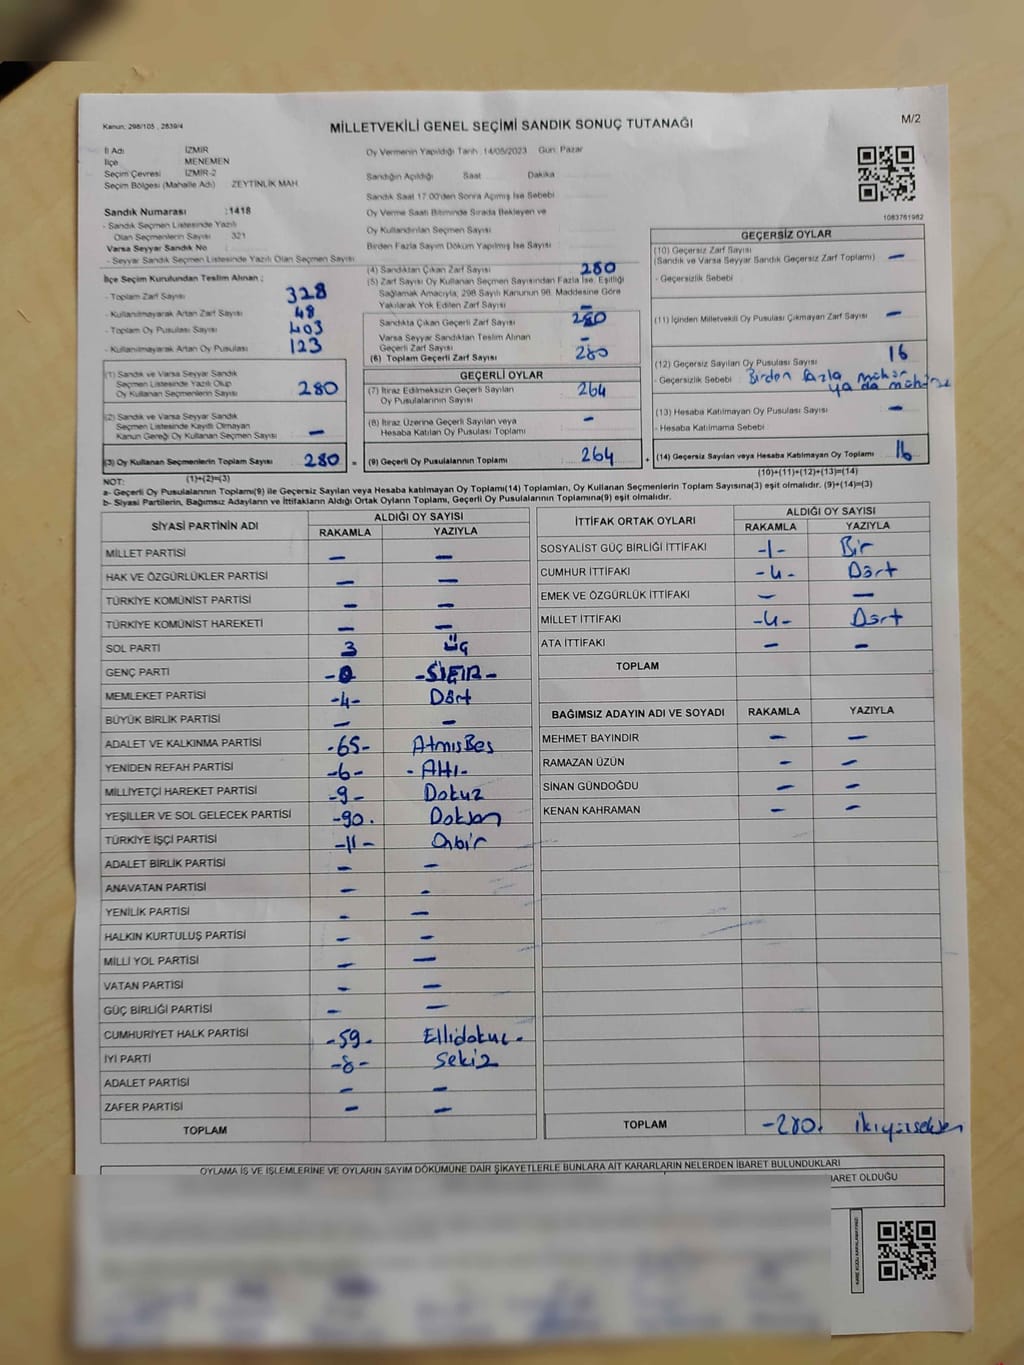 Kanun; 298/105 , 2839/4
MİLLETVEKİLİ GENEL SEÇİMİ SANDIK SONUÇ TUTANAĞI
M/2
İl Adı İZMİR
İlçe MENEMEN
Seçim Çevresi İZMİR-2
Seçim Bölgesi (Mahalle Adı) : ZEYTİNLİK MAH
Sandık Numarası :1418
- Sandık Seçmen Listesinde Yazılı
Olan Seçmenlerin Sayısı 321
Varsa Seyyar Sandık No
- Seyyar Sandık Seçmen Listesinde Yazılı Olan Seçmen Sayısı
Oy Vermenin Yapıldığı Tarih :14/05/2023 Gün: Pazar
Sandığın Açıldığı Saat Dakika
Sandık Saat 17.00'den Sonra Açılmış İse Sebebi
Oy Verme Saati Bitiminde Sırada Bekleyen ve
Oy Kullandırılan Seçmen Sayısı
Birden Fazla Sayım Döküm Yapılmış İse Sayısı
1083761982
İlçe Seçim Kurulundan Teslim Alınan ;
- Toplam Zarf Sayısı 328
- Kullanılmayarak Artan Zarf Sayısı 48
- Toplam Oy Pusulası Sayısı 403
- Kullanılmayarak Artan Oy Pusulası 123
(1) Sandık ve Varsa Seyyar Sandık
Seçmen Listesinde Yazılı Olup
Oy Kullanan Seçmenlerin Sayısı 280
(2) Sandık ve Varsa Seyyar Sandık
Seçmen Listesinde Kayıtlı Olmayan
Kanun Gereği Oy Kullanan Seçmen Sayısı —
(3) Oy Kullanan Seçmenlerin Toplam Sayısı 280 =
(1)+(2)=(3)
(4) Sandıktan Çıkan Zarf Sayısı 280
(5) Zarf Sayısı Oy Kullanan Seçmen Sayısından Fazla İse, Eşitliği
Sağlamak Amacıyla, 298 Sayılı Kanunun 98. Maddesine Göre
Yakılarak Yok Edilen Zarf Sayısı —
Sandıkta Çıkan Geçerli Zarf Sayısı 280
Varsa Seyyar Sandıktan Teslim Alınan
Geçerli Zarf Sayısı —
(6) Toplam Geçerli Zarf Sayısı 280
GEÇERLİ OYLAR
(7) İtiraz Edilmeksizin Geçerli Sayılan
Oy Pusulalarının Sayısı 264
(8) İtiraz Üzerine Geçerli Sayılan veya
Hesaba Katılan Oy Pusulası Toplamı —
(9) Geçerli Oy Pusulalarının Toplamı 264 +
GEÇERSİZ OYLAR
(10) Geçersiz Zarf Sayısı
(Sandık ve Varsa Seyyar Sandık Geçersiz Zarf Toplamı) —
- Geçersizlik Sebebi
(11) İçinden Milletvekili Oy Pusulası Çıkmayan Zarf Sayısı —
(12) Geçersiz Sayılan Oy Pusulası Sayısı 16
- Geçersizlik Sebebi Birden fazla mühür
ya da
(13) Hesaba Katılmayan Oy Pusulası Sayısı —
- Hesaba Katılmama Sebebi
(14) Geçersiz Sayılan veya Hesaba Katılmayan Oy Toplamı 16
(10)+(11)+(12)+(13)=(14)
NOT:
a- Geçerli Oy Pusulalarının Toplamı(9) ile Geçersiz Sayılan veya Hesaba katılmayan Oy Toplamı(14) Toplamları, Oy Kullanan Seçmenlerin Toplam Sayısına(3) eşit olmalıdır. (9)+(14)=(3)
b- Siyasi Partilerin, Bağımsız Adayların ve İttifakların Aldığı Ortak Oyların Toplamı, Geçerli Oy Pusulalarının Toplamına(9) eşit olmalıdır.
SİYASİ PARTİNİN ADI ALDIĞI OY SAYISI
RAKAMLA YAZIYLA
MİLLET PARTİSİ — —
HAK VE ÖZGÜRLÜKLER PARTİSİ — —
TÜRKİYE KOMÜNİST PARTİSİ — —
TÜRKİYE KOMÜNİST HAREKETİ — —
SOL PARTİ 3 Üç
GENÇ PARTİ -0 -SIFIR-
MEMLEKET PARTİSİ -4- Dört
BÜYÜK BİRLİK PARTİSİ — —
ADALET VE KALKINMA PARTİSİ -65- AtmısBeş
YENİDEN REFAH PARTİSİ -6- -Altı-
MİLLİYETÇİ HAREKET PARTİSİ -9- Dokuz
YEŞİLLER VE SOL GELECEK PARTİSİ -90. Doksan
TÜRKİYE İŞÇİ PARTİSİ -11- Onbir
ADALET BİRLİK PARTİSİ — —
ANAVATAN PARTİSİ — -
YENİLİK PARTİSİ - —
HALKIN KURTULUŞ PARTİSİ — —
MİLLİ YOL PARTİSİ — —
VATAN PARTİSİ - —
GÜÇ BİRLİĞİ PARTİSİ — —
CUMHURİYET HALK PARTİSİ -59- Ellidokuz-
İYİ PARTİ -8- Sekiz
ADALET PARTİSİ — —
ZAFER PARTİSİ — —
TOPLAM
İTTİFAK ORTAK OYLARI ALDIĞI OY SAYISI
RAKAMLA YAZIYLA
SOSYALİST GÜÇ BİRLİĞİ İTTİFAKI -1- Bir
CUMHUR İTTİFAKI -4- Dört
EMEK VE ÖZGÜRLÜK İTTİFAKI — —
MİLLET İTTİFAKI -4- Dört
ATA İTTİFAKI — —
TOPLAM
BAĞIMSIZ ADAYIN ADI VE SOYADI RAKAMLA YAZIYLA
MEHMET BAYINDIR — —
RAMAZAN ÜZÜN — —
SİNAN GÜNDOĞDU — —
KENAN KAHRAMAN — —
TOPLAM -280. ikiyüzseksen
OYLAMA İŞ VE İŞLEMLERİNE VE OYLARIN SAYIM DÖKÜMÜNE DAİR ŞİKAYETLERLE BUNLARA AİT KARARLARIN NELERDEN İBARET BULUNDUKLARI
BARET OLDUĞU